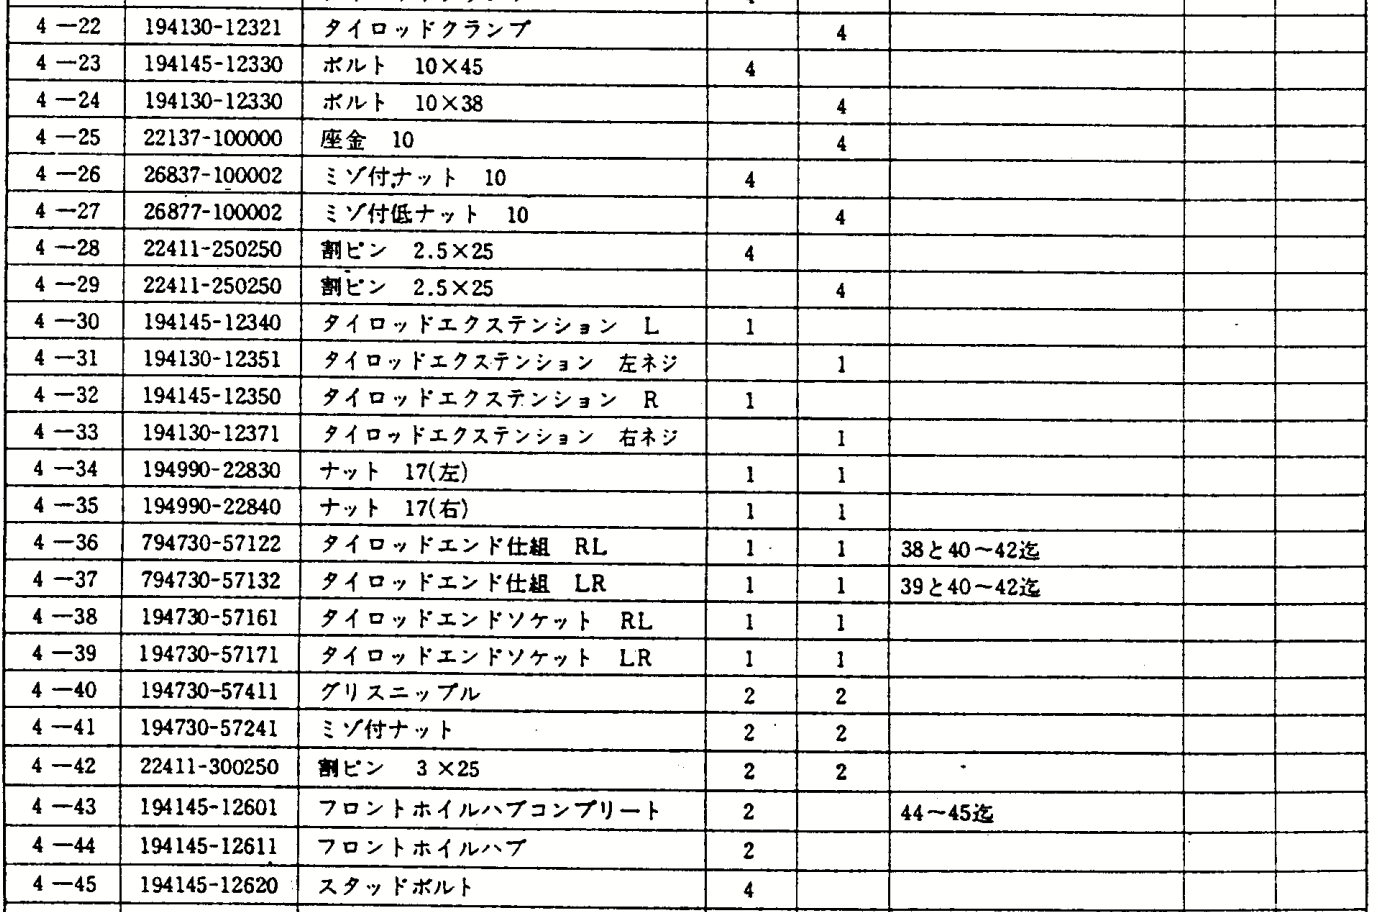 4－22 194130-12321 タイロッドクランプ 4
4－23 194145-12330 ボルト 10×45 4
4－24 194130-12330 ボルト 10×38 4
4－25 22137-100000 座金 10 4
4－26 26837-100002 ミゾ付ナット 10 4
4－27 26877-100002 ミゾ付低ナット 10 4
4－28 22411-250250 割ピン 2.5×25 4
4－29 22411-250250 割ピン 2.5×25 4
4－30 194145-12340 タイロッドエクステンション L 1
4－31 194130-12351 タイロッドエクステンション 左ネジ 1
4－32 194145-12350 タイロッドエクステンション R 1
4－33 194130-12371 タイロッドエクステンション 右ネジ 1
4－34 194990-22830 ナット 17(左) 1 1
4－35 194990-22840 ナット 17(右) 1 1
4－36 794730-57122 タイロッドエンド仕組 RL 1 1 38と40～42迄
4－37 794730-57132 タイロッドエンド仕組 LR 1 1 39と40～42迄
4－38 194730-57161 タイロッドエンドソケット RL 1 1
4－39 194730-57171 タイロッドエンドソケット LR 1 1
4－40 194730-57411 グリスニップル 2 2
4－41 194730-57241 ミゾ付ナット 2 2
4－42 22411-300250 割ピン 3×25 2 2
4－43 194145-12601 フロントホイルハブコンプリート 2 44～45迄
4－44 194145-12611 フロントホイルハブ 2
4－45 194145-12620 スタッドボルト 4